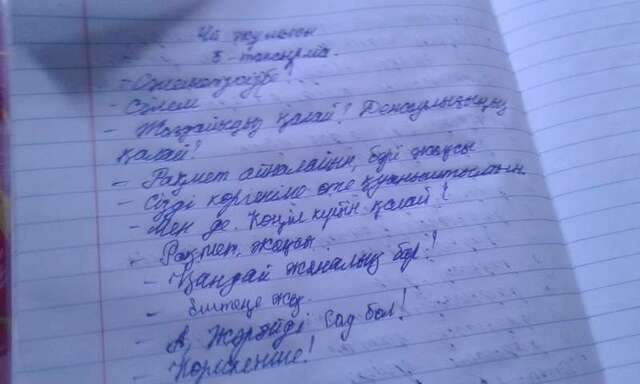 Үй жұмысы
5 - тапсырма.
- Сәлеметсізбе!
- Сәлем
- Жағдайыңыз қалай? Денсаулығыңыз
қалай?
- Рақмет айналайын, бәрі жақсы
- Сізді көргеніме өте қуаныштымын
- Мен де. Көңіл күйің қалай?
- Рақмет, жақсы
- Қандай жаналық бар?
- Ештеңе жоқ.
- А, Жарайді Сау бол!
- Көріскенше!